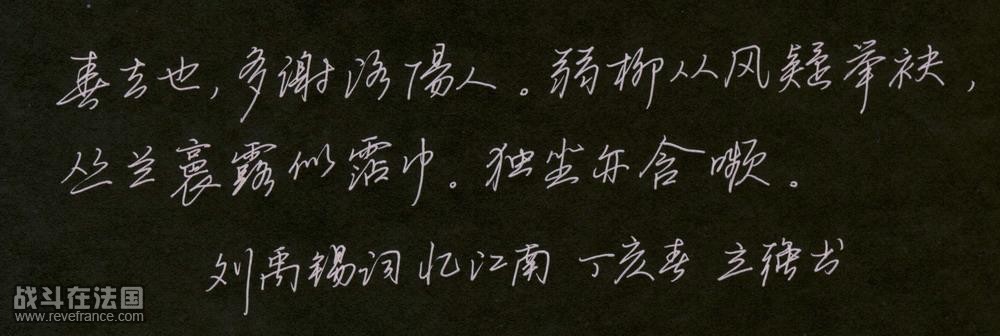 春去也，多谢洛陽人。弱柳从风疑举袂，
丛兰裛露似霑巾。独坐亦含嚬。
刘禹锡词 忆江南 丁亥春 立强书
战斗在法国
www.revefrance.com